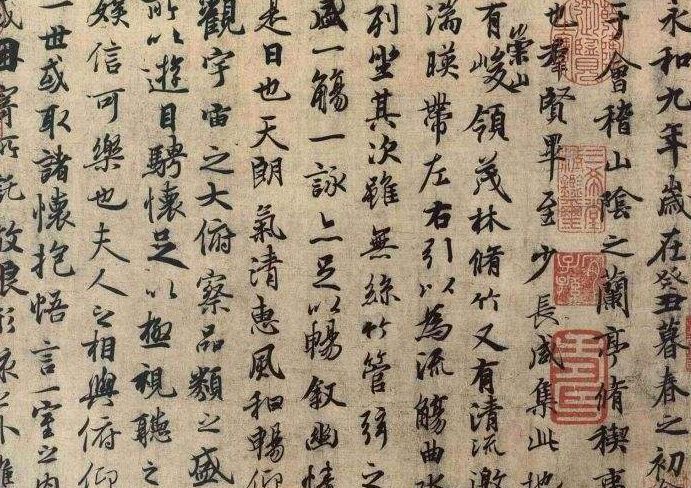 永和九年歲在癸丑暮春之初
于會稽山陰之蘭亭脩稧事
也羣賢畢至少長咸集此地
有崇山峻領茂林脩竹又有清流激
湍暎帶左右引以為流觴曲水
列坐其次雖無絲竹管弦之
盛一觴一詠亦足以暢叙幽情
是日也天朗氣清惠風和暢仰
觀宇宙之大俯察品類之盛
所以遊目騁懷足以極視聽之
娛信可樂也夫人之相與俯仰
一世或取諸懷抱悟言一室之內
或因寄所託放浪形